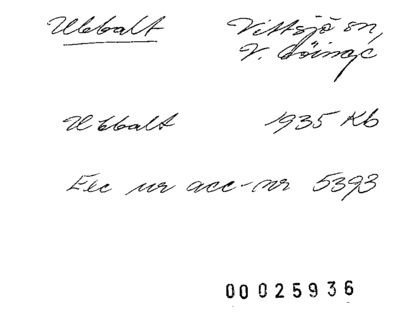 Ubbalt Vittsjö sn,
V. Göinge
Ubbalt 1935 Kb
Exc ur acc-nr 5393
00025936